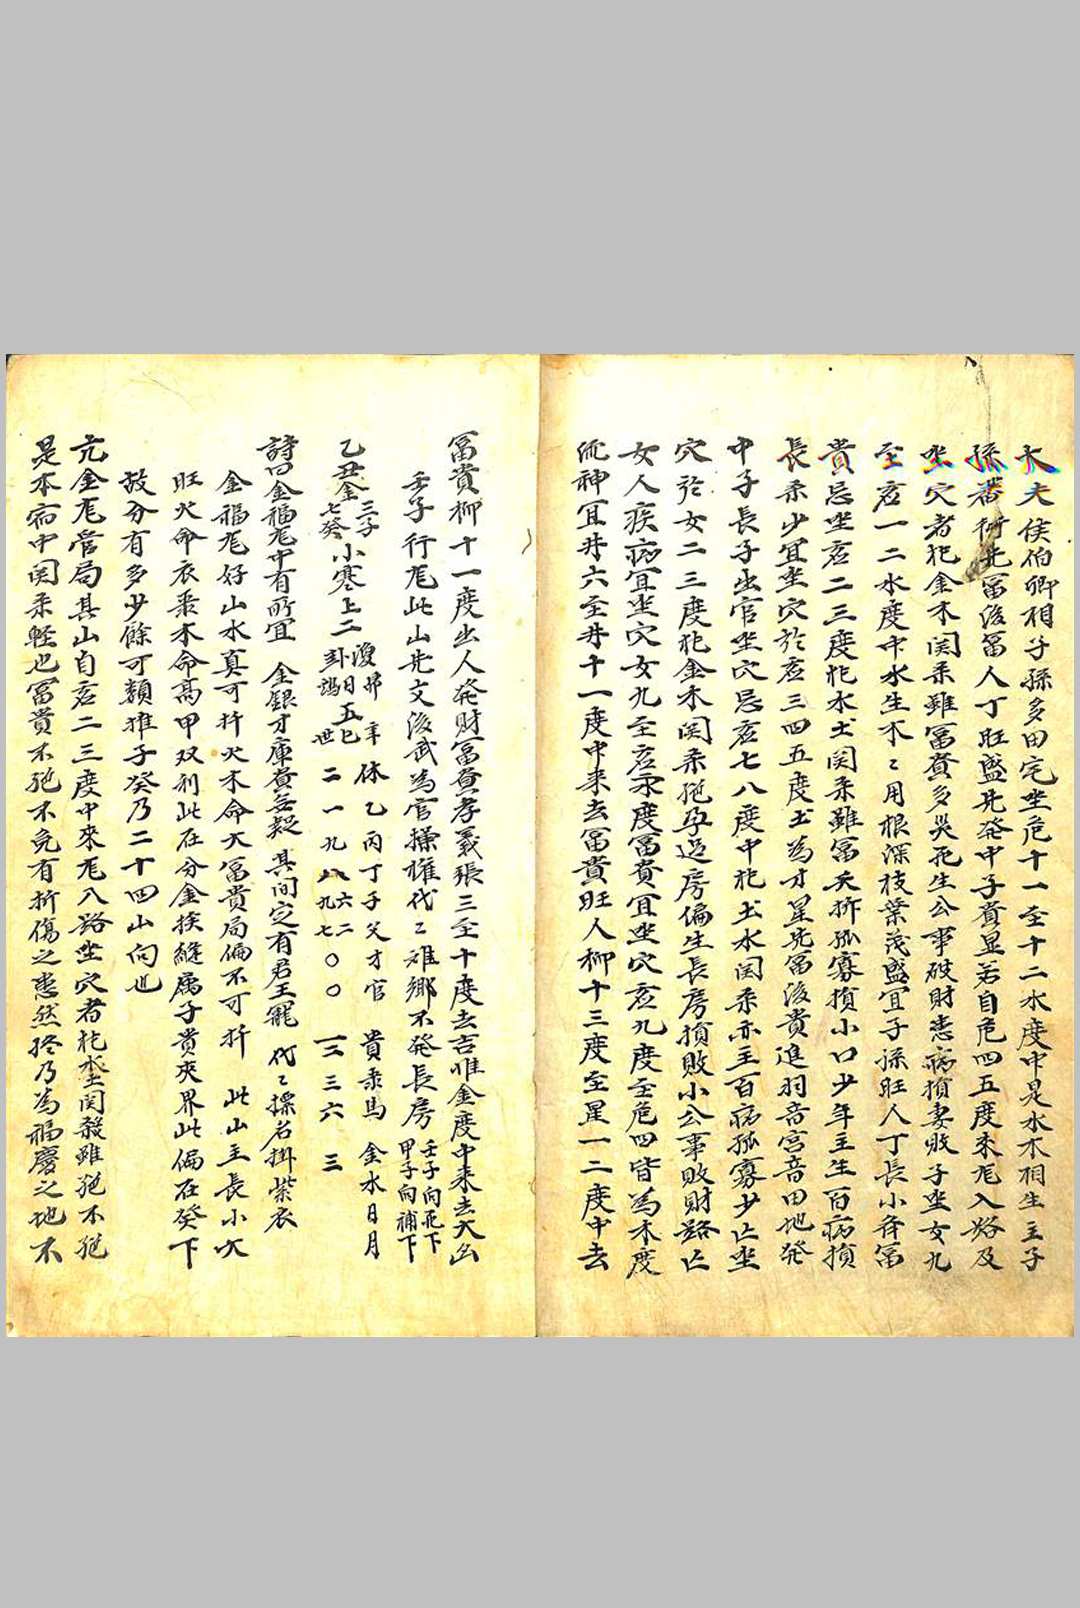 大夫侯伯卿相子孫多田宅坐危十一至十二水度中是水木相生主子
孫蕃衍先富後富人丁旺盛先発中子貴显若自危四五度來尨入路及
坐穴者犯金木関柔雖冨貴多災死生公事破財患病損妻败子坐女九
至虛一二水度中水生木〻用根深枝葉茂盛宜子孫旺人丁長小斉冨
貴忌坐虛二三度犯水土関柔雖冨夭折孤寡損小口少年主生百病損
長柔少宜坐穴於虛三四五度土为才星先冨後貴進羽音宫音田地発
中子長子出官坐穴忌虛七八度中犯土水関柔亦主百病孤寡少亡坐
穴於女二三度犯金木関柔絶孕过房偏生長房損敗小公事败財路亡
女人疾病宜坐穴女九至虛初度冨貴宜坐穴虛九度至危四皆為木度
流神宜井六至井十一度中来去冨貴旺人柳十三度至星一二度中去
冨貴柳十一度出人発財冨貴孝義張三至十度去吉惟金度中来去大凶
壬子行尨此山先文後武為官操權代〻难鄉不発長房 壬子向死下
甲子向補下
乙丑金 三子 七癸 小寒上二 復昴年 卦謁 日五巳 世 休乙丙丁子父才官 貴柔馬 金水日月
二一九八六二 九七〇〇 一三三六三
詩曰金福尨中有所宜 金銀才庫貴無疑 其间定有君王寵 代〻摽名掛紫衣
金福尨好山水真可扦火木命大冨貴局偏不可扦 此山主長小大
旺火命衣柔本命高甲双利此在分金挨縫属子貴夾界此偏在癸下
故分有多少餘可類推子癸乃二十四山向也
亢金尨営局其山自虛二三度中來尨八路坐穴者犯水土関発雖絶不絶
是本宿中関柔軽也冨貴不絶不免有折傷之患然終乃為福慶之地不